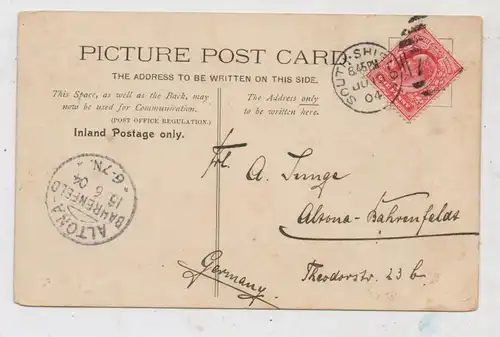 PICTURE POST CARD.
THE ADDRESS TO BE WRITTEN ON THIS SIDE.
This Space, as well as the Back, may
now be used for Communication.
(POST OFFICE REGULATION.)
Inland Postage only.
The Address only
to be written here.
SOUTH SHIE
8.45PM
JU
04
ALTONA
BAHRENFELD
6
04
6-7N.
Frl. A. Junge
Altona-Bahrenfeldt
Theodorstr. 23 b.
Germany.